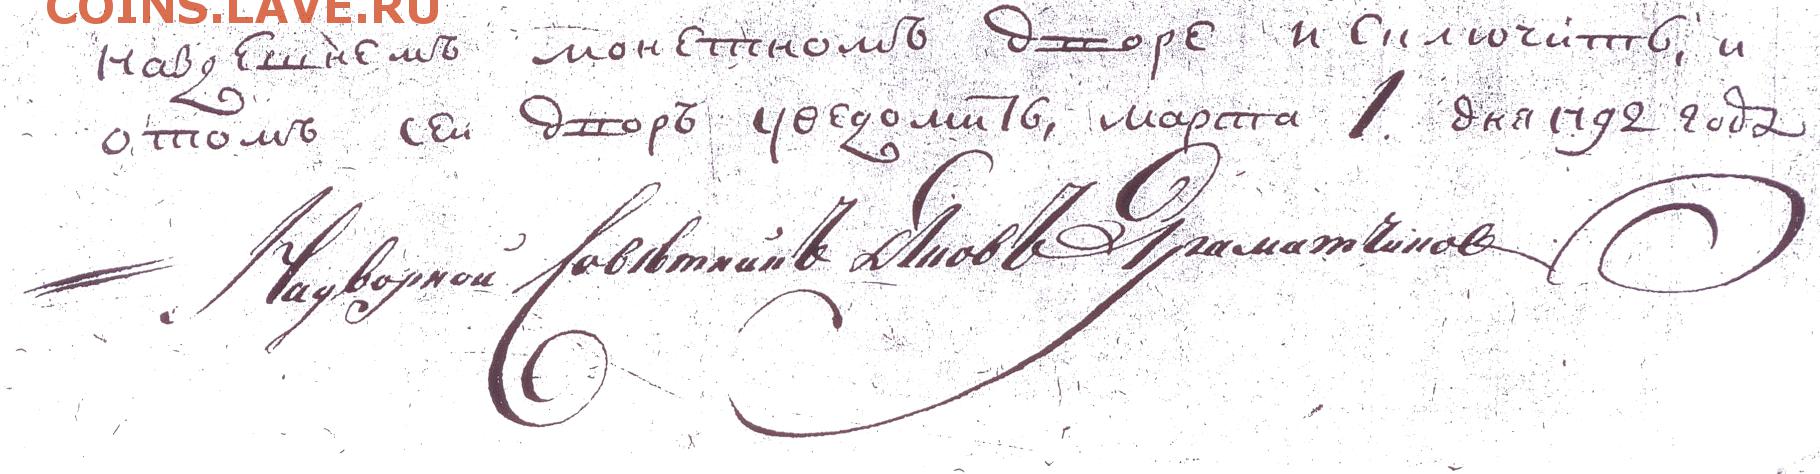 COINS.LAVE.RU
Назdешнемъ монетномъ дворе исключить, и
отомъ сеи дворъ уведомить, марта 1. дня 1792 года
Надворной Советникъ Яковъ Граматчиковъ